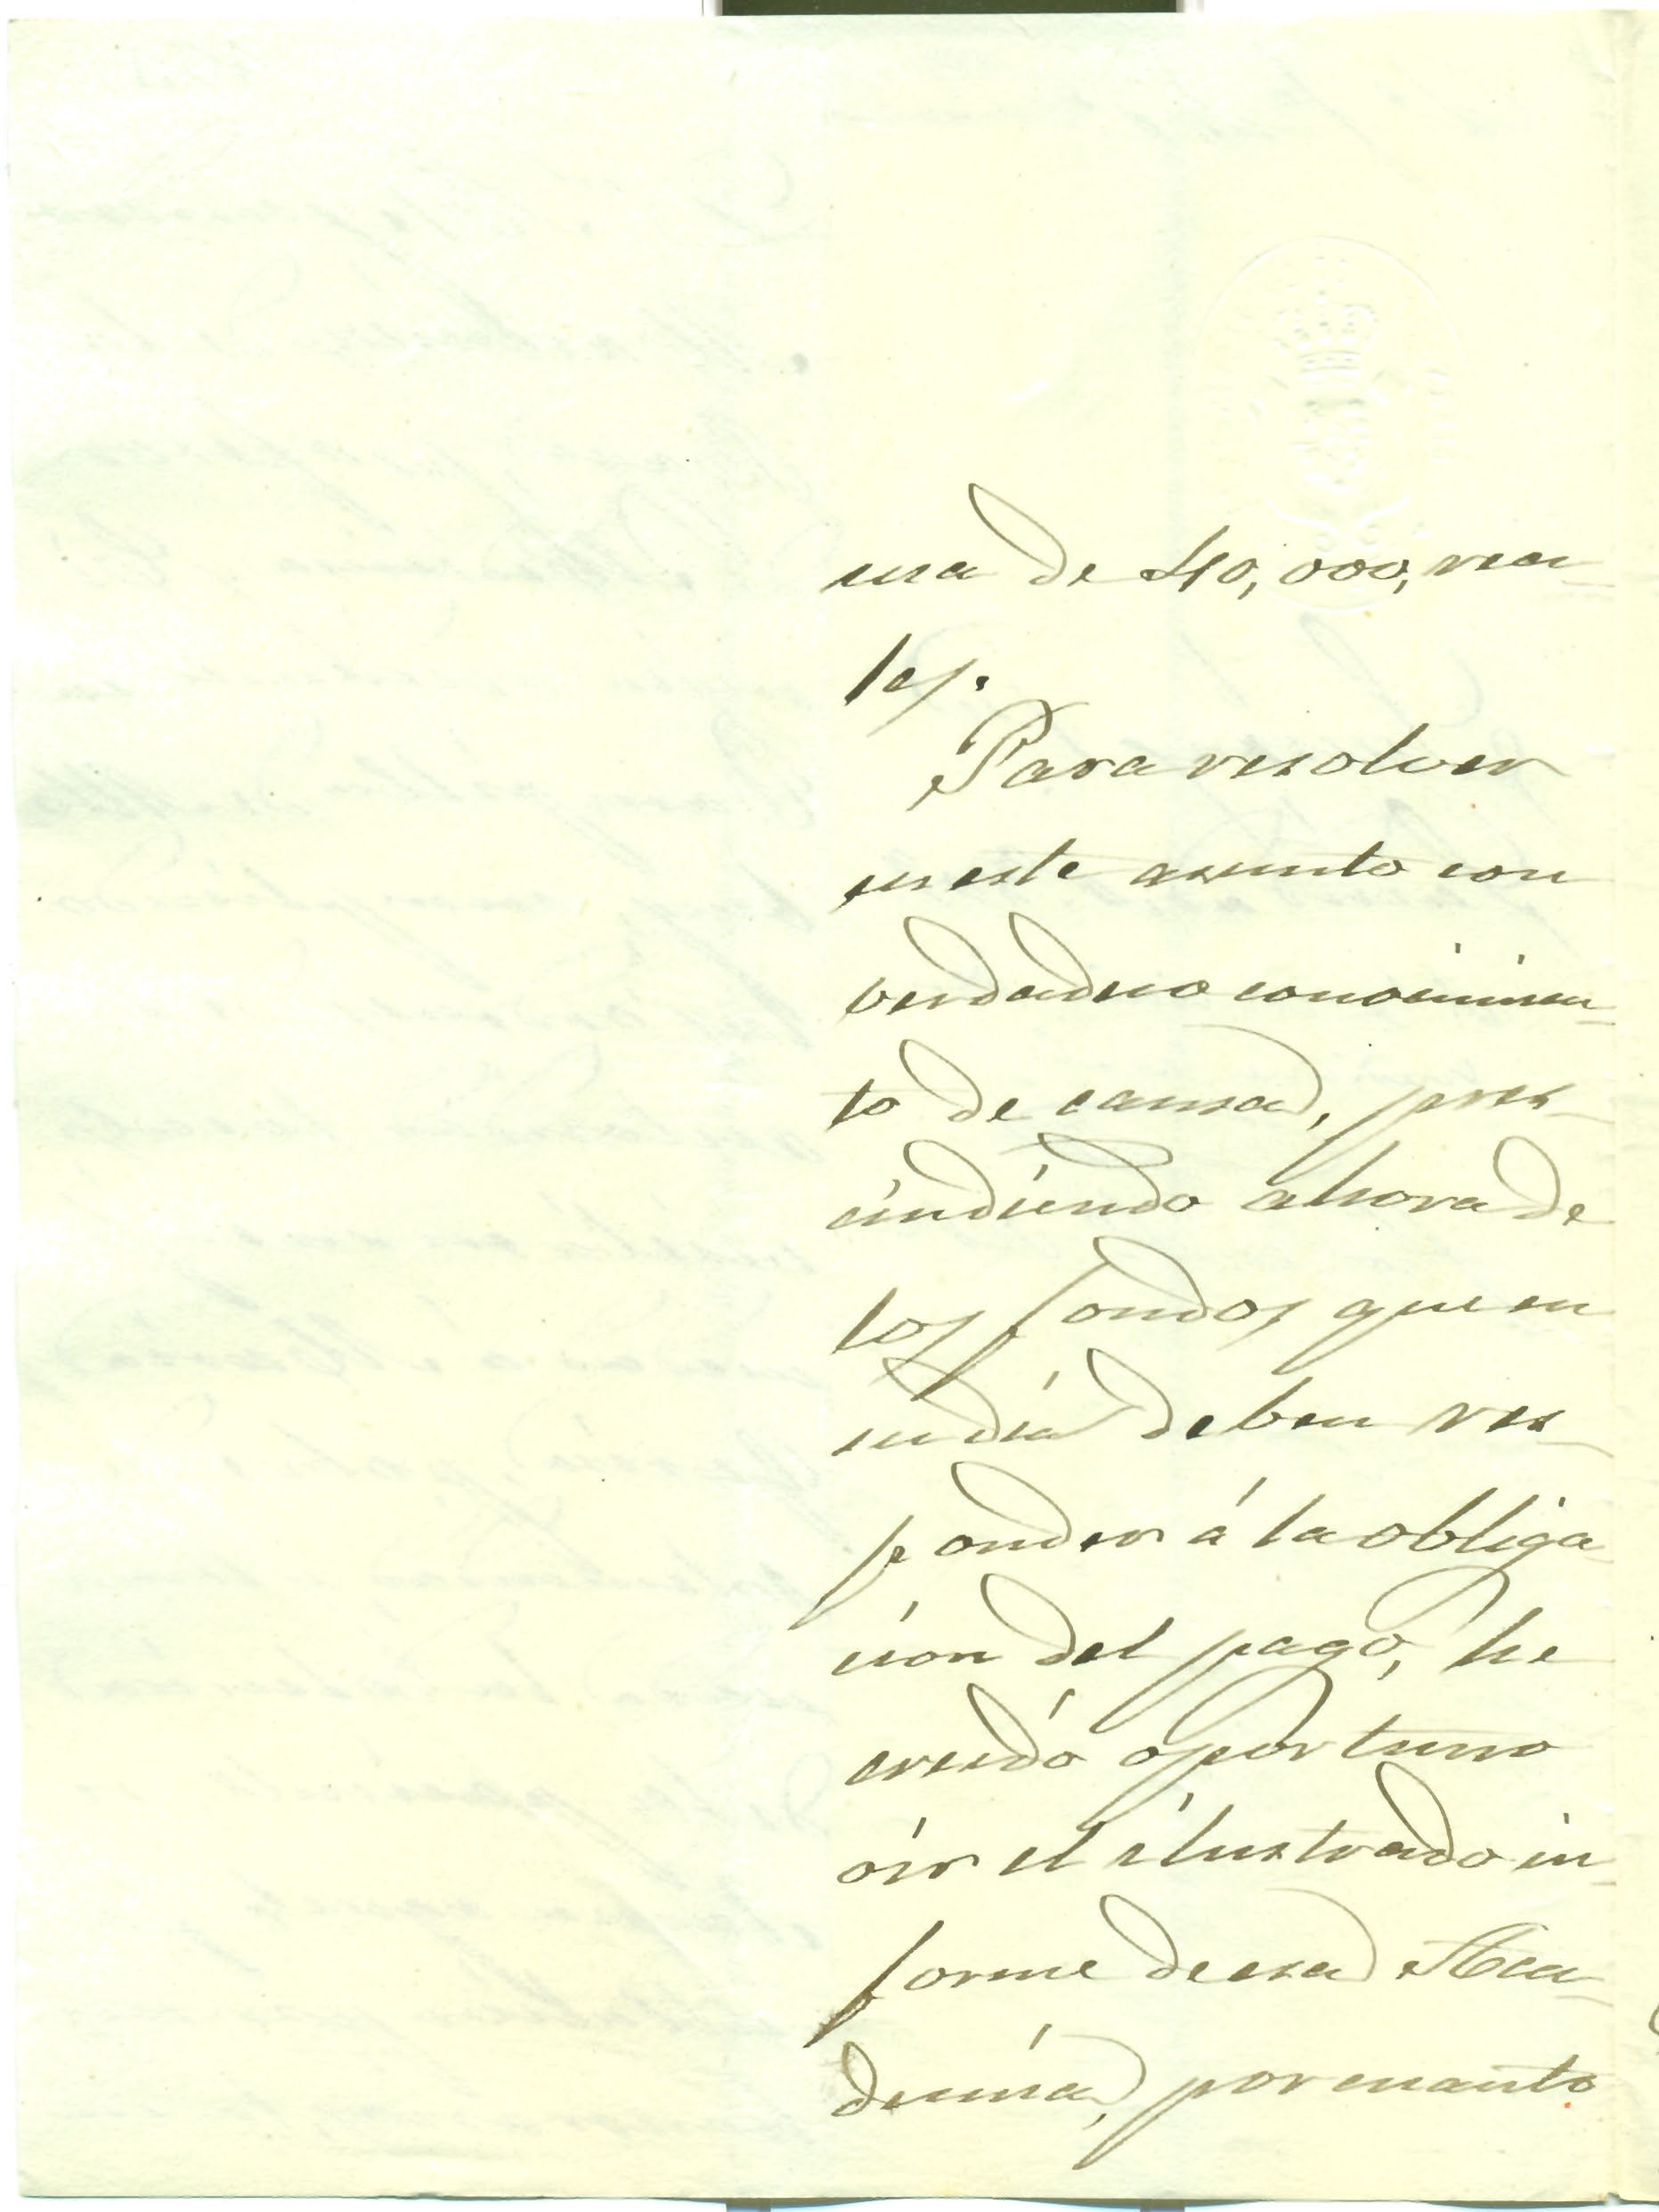 ma de 40,000, rea-
les.
Para resolver
en este asunto con
verdadero conocimien-
to de causa, pres-
cindiendo ahora de
los fondos que en
su dia deben res-
ponder á la obliga-
cion del pago, he
creido oportuno
oir el ilustrado in-
forme de esa Aca-
demia, por cuanto